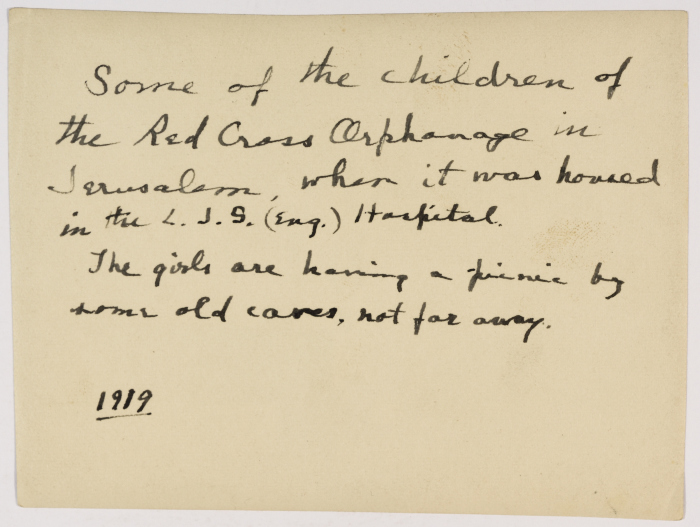 Some of the children of
the Red Cross Orphanage in
Jerusalem, when it was housed
in the L. J. S. (Eng.) Hospital.
The girls are having a picnic by
some old caves, not far away.
1919